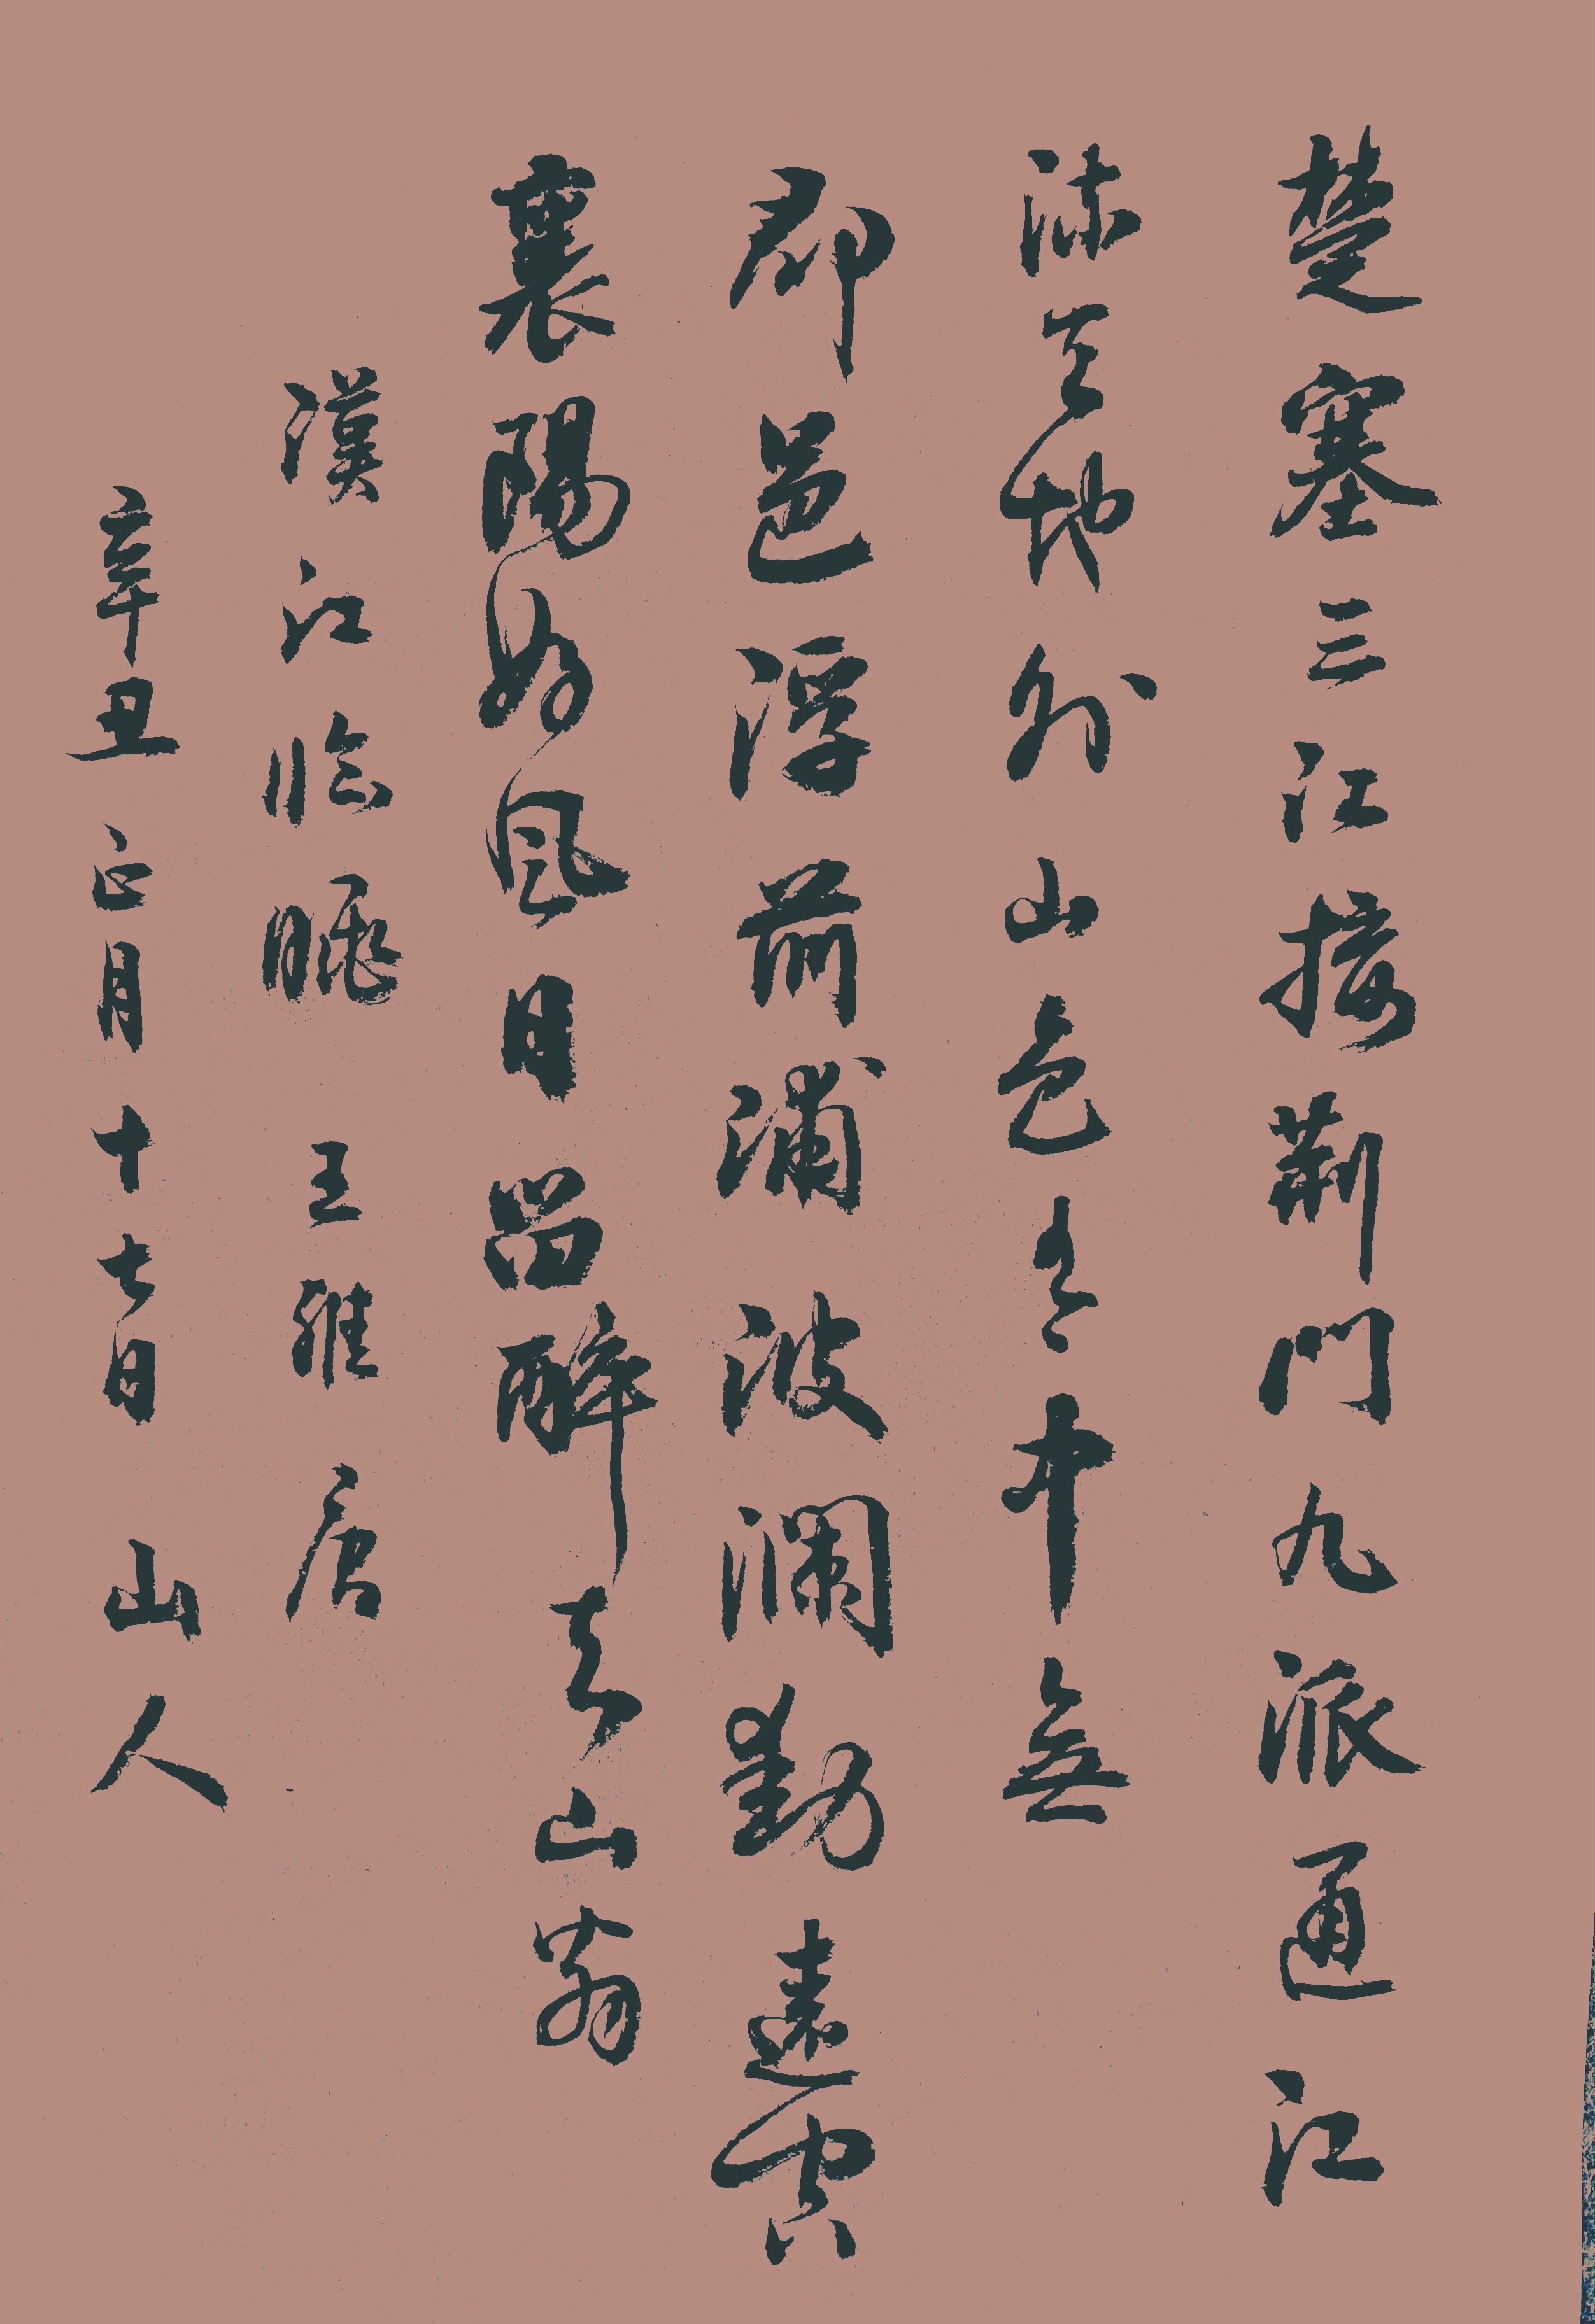 楚塞三江接荊門九派通江
流天地外山色有中無
郡邑浮前浦波瀾動遠空
襄陽好風日留醉與山翁
漢江臨眺 王維 唐
辛丑正月十七日 山人